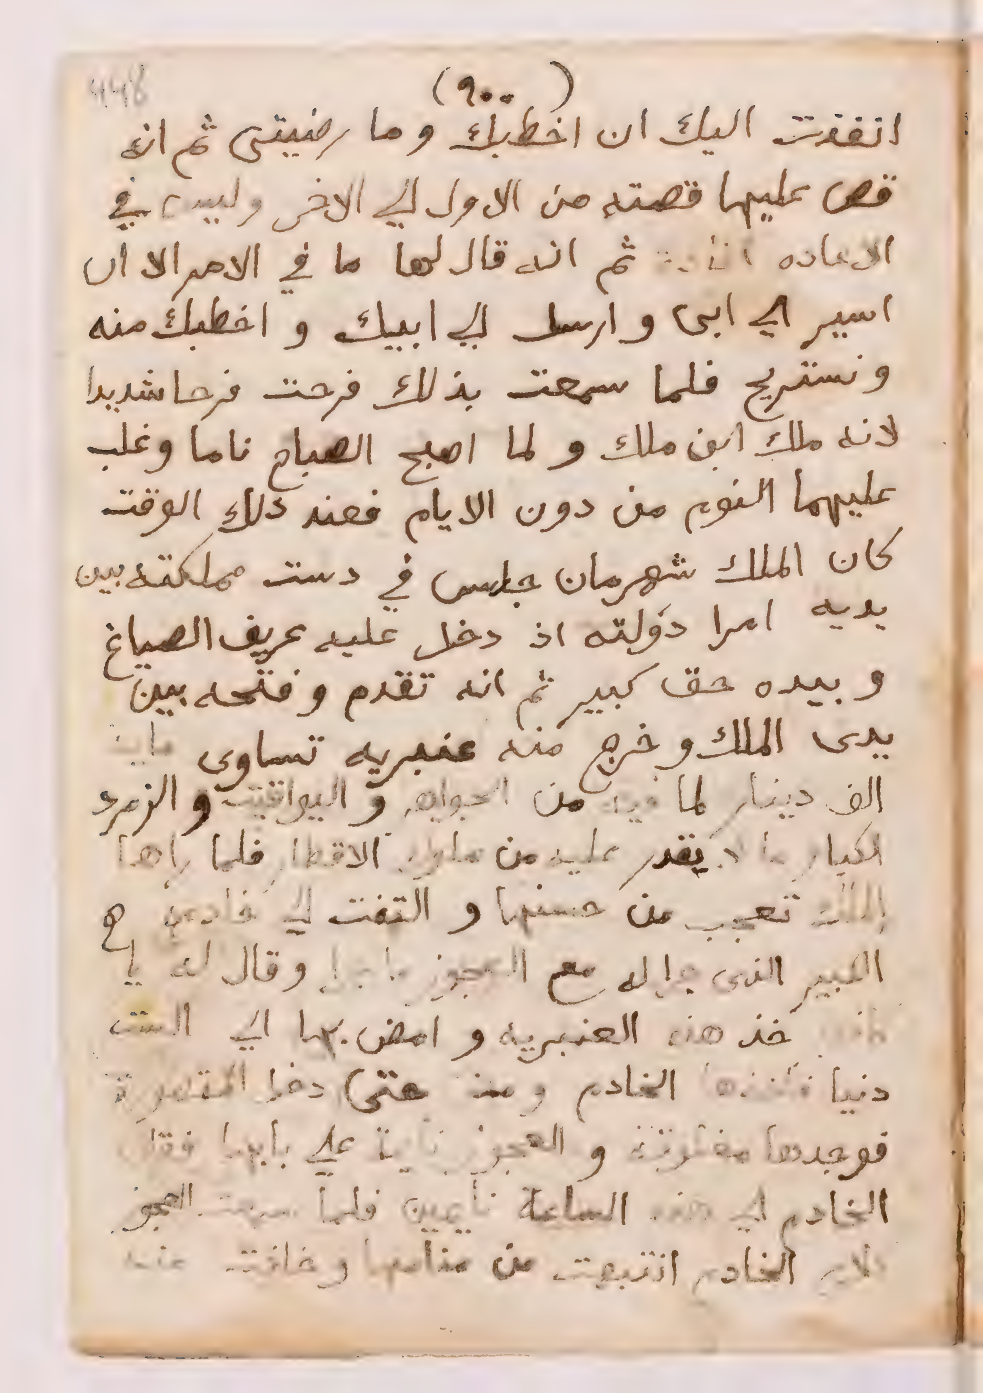 448
(٩٠٠)
انفذت اليك ان اخطبك وما رضيتى ثم انه
قص عليها قصته من الاول الي الاخر وليس في
الاعاده افاده ثم انه قال لها ما في الامر الا ان
اسير الي ابى و ارسل الي ابيك و اخطبك منه
ونستريح فلما سمعت بذلك فرحت فرحا شديدا
لانه ملك ابن ملك و لما اصبح الصباح ناما وغلب
عليهما النوم من دون الايام فعند ذلك الوقت
كان الملك شهرمان جلس في دست مملكته بين
يديه امرا دولته اذ دخل عليه عريف الصياغ
و بيده حق كبير ثم انه تقدم و فتحه بين
يدى الملك و خرج منه عنبريه تساوى ماية
الف دينار لما فيه من الجواهر و اليواقيت و الزمرد
الكبار ما لا يقدر عليه من ملوك الاقطار فلما راها
الملك تعجب من حسنها و التفت الي خادمه
الكبير الذى جرا له مع العجوز ما جرا وقال له يا
خذ هذه العنبريه و امض بها الي الست
دنيا فاخذها الخادم و حتى دخل المقصورة
فوجدها مغلوقة و العجوز نايمة علي بابها فقال
الخادم الي هذه الساعة نايمين فلما سمعت العجوز
كلام الخادم انتبهت من منامها و خافت منه